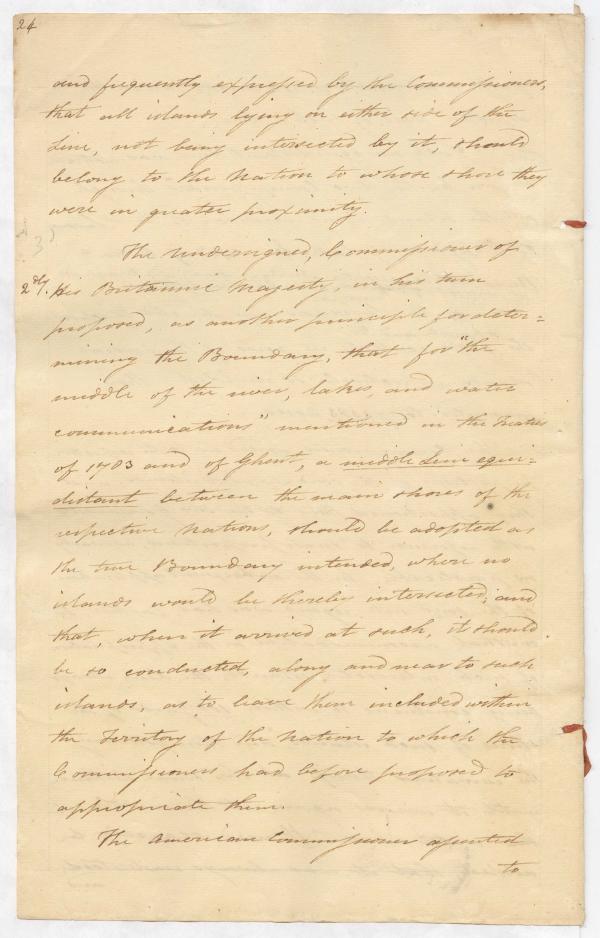 24
and frequently expressed by the Commissioners,
that all islands lying on either side of the
Line, not being intersected by it, should
belong to the Nation to whose shore they
were in greater proximity.
The Undersigned, Commissioner of
2dly. His Britannic Majesty, in his turn
proposed, as another principle for deter=
mining the Boundary, that for "the
middle of the river, lakes, and water
communications" mentioned in the Treaties
of 1783 and of Ghent, a middle Line equi-
distant between the main shores of the
respective Nations, should be adopted as
the true Boundary intended, where no
islands would be thereby intersected; and
that, when it arrived at such, it should
be so conducted, along and near to such
islands, as to leave them included within
the Territory of the Nation to which the
Commissioners had before proposed to
appropriate them.
The American Commissioner assented
to